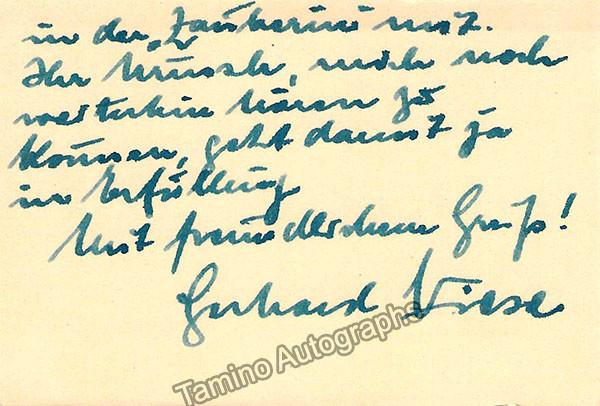 in der „Zauberin" mit.
Ihr Wunsch, mich noch
weiterhin hören zu
können, geht damit ja
in Erfüllung
Mit freundlichem Gruß!
Gerhard Wiese
Tamino Autographs